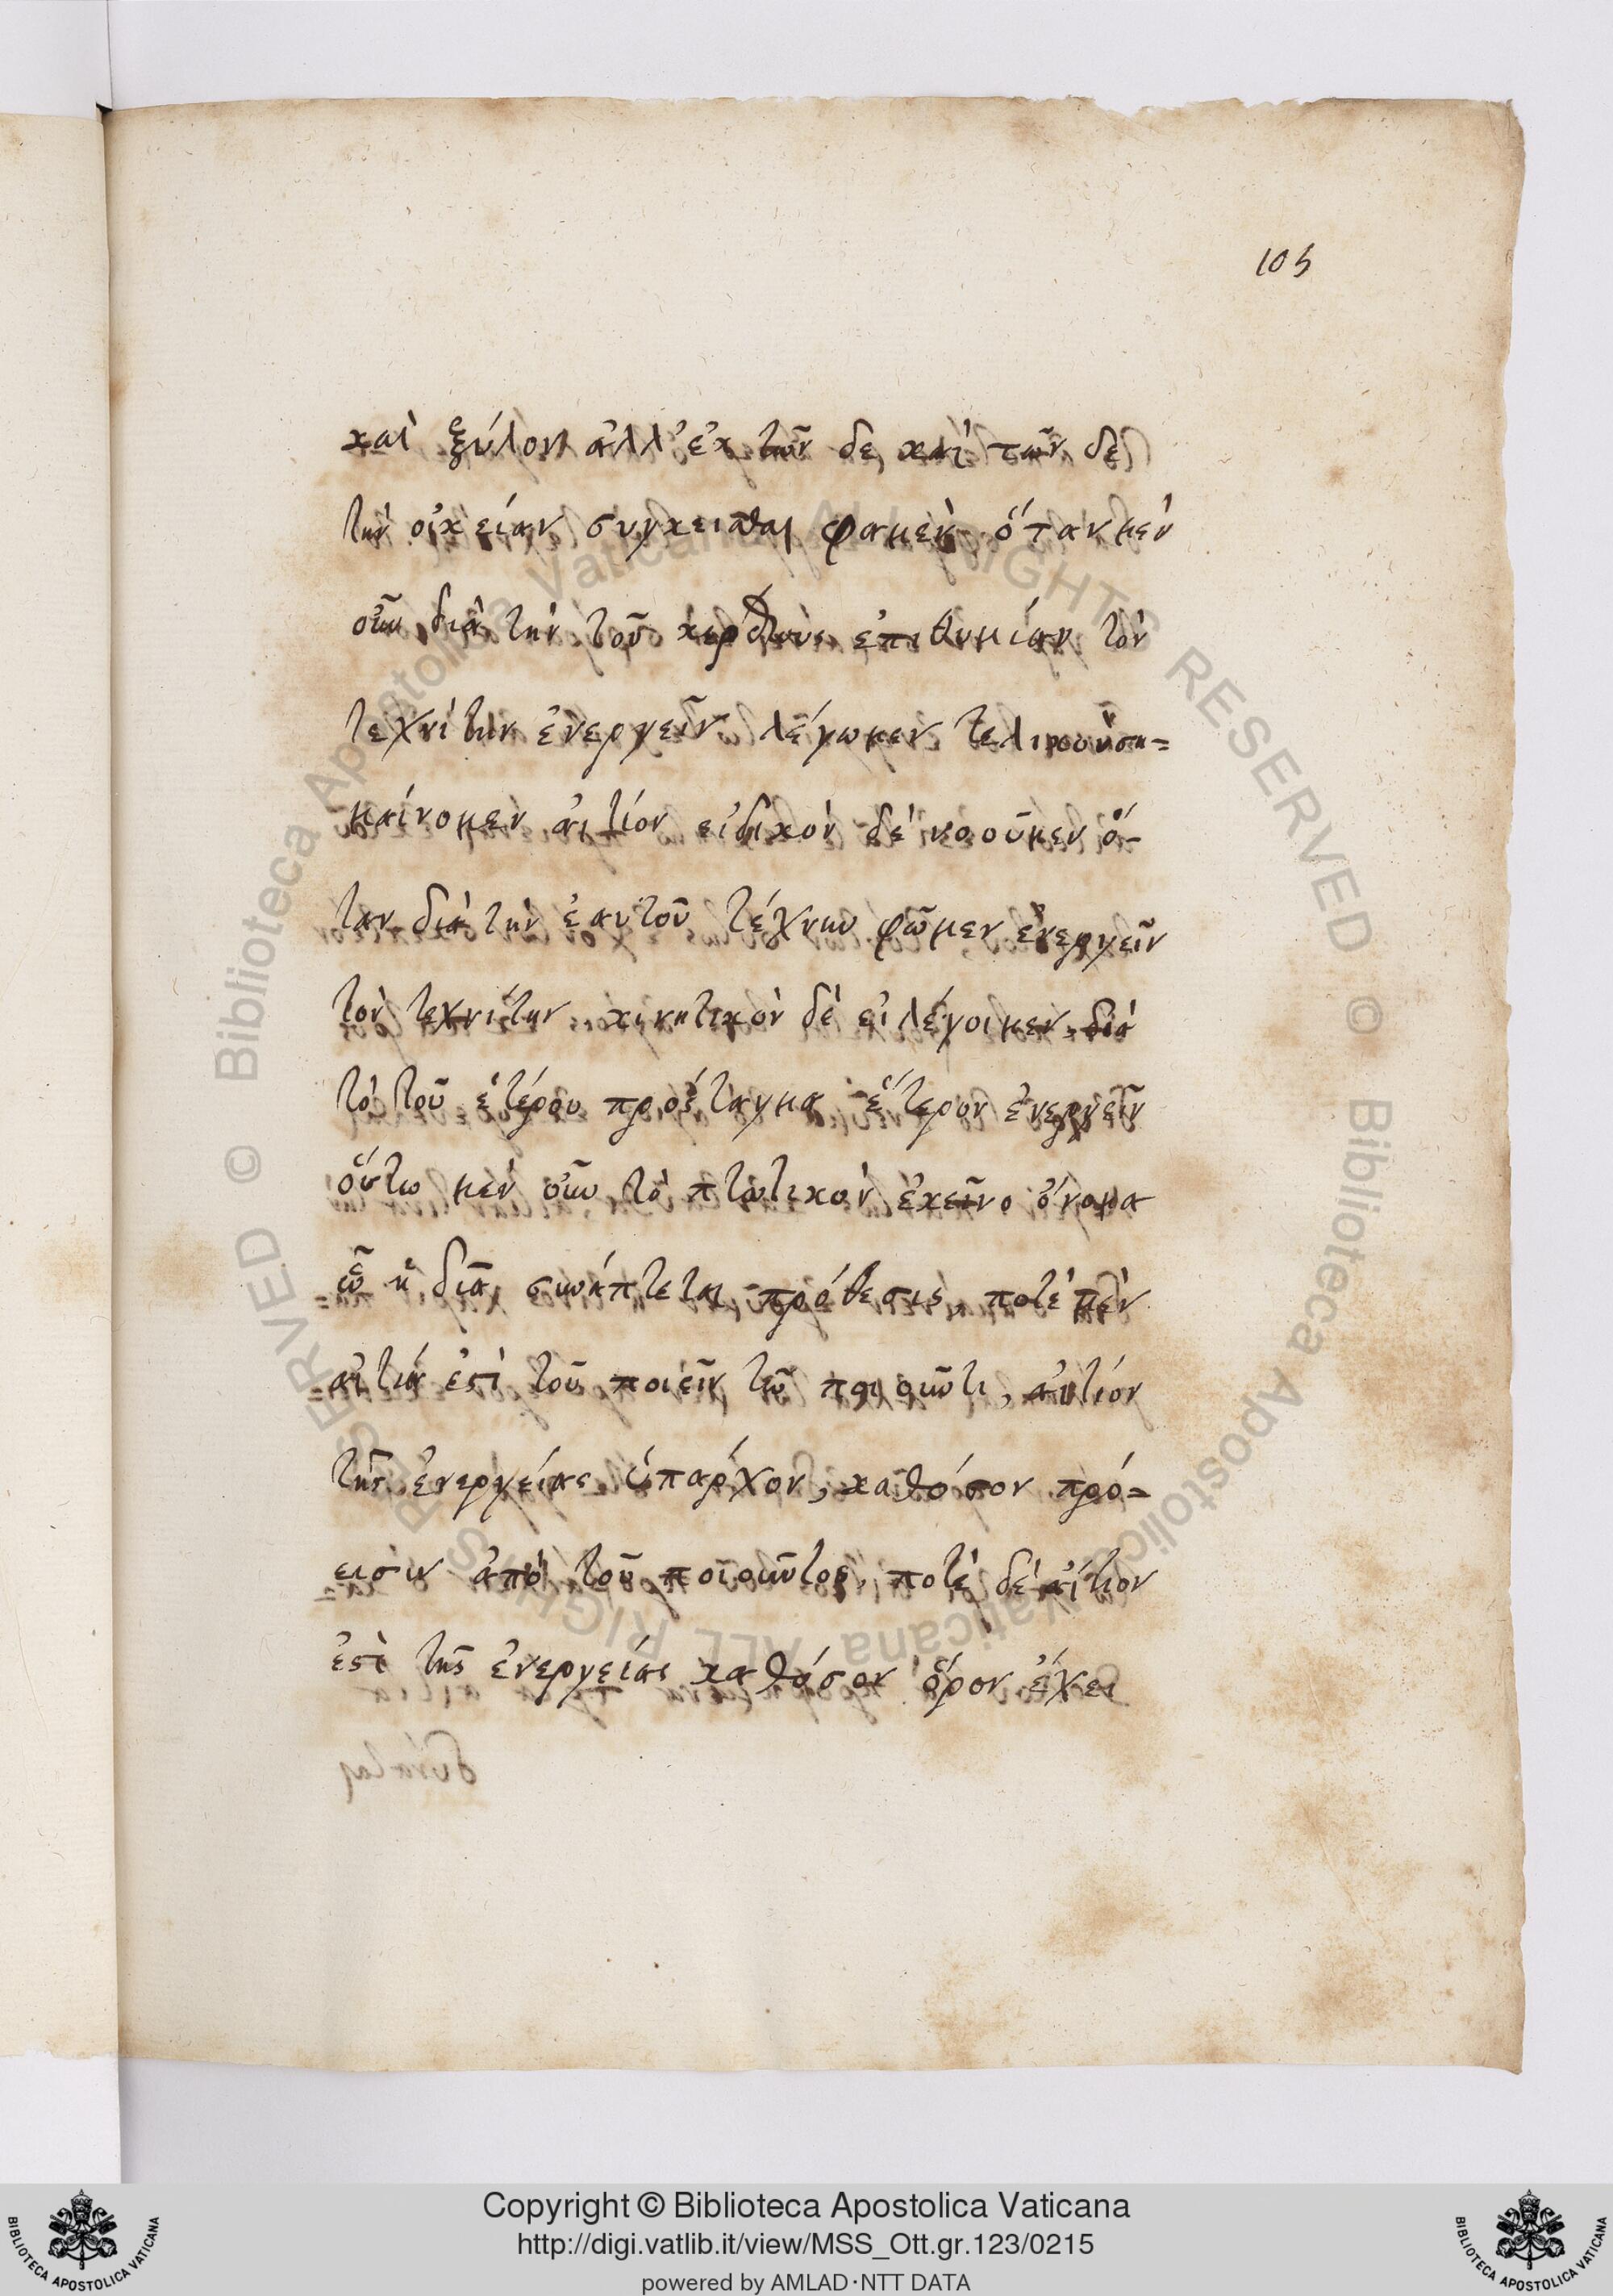 105
καὶ ξύλον ἀλλ' ἐκ τῶν δε καὶ τῶν δε
τὴν οἰκείαν συγκεῖσθαι φαμὲν ὅταν μὲν
οὖν διὰ τὴν τοῦ κέρδους ἐπιθυμίαν τὸν
τεχνίτην ἐνεργεῖν λέγωμεν τελικὸν σημ=
μαίνομεν αἴτιον εἰδικὸν δὲ νοοῦμεν ὅ-
ταν διὰ τὴν ἑαυτοῦ τέχνην φῶμεν ἐνεργεῖν
τὸν τεχνίτην κινητικὸν δὲ εἰ λέγοιμεν διὰ
τὸ τοῦ ἑτέρου πρόσταγμα ἕτερον ἐνεργεῖν
οὕτω μὲν οὖν τὸ πτωτικὸν ἐκεῖνο ὄνομα
ᾧ ἡ διὰ συνάπτεται πρόθεσις, ποτὲ μὲν
αἰτία ἐστὶ τοῦ ποιεῖν τῷ ποιοῦντι, αἴτιον
τῆς ἐνεργείας ὑπάρχον, καθόσον πρό=
εισιν ἀπὸ τοῦ ποιοῦντος, ποτὲ δὲ αἴτιον
ἐστὶ τῆς ἐνεργείας καθόσον ὅρον ἔχει
Copyright © Biblioteca Apostolica Vaticana
http://digi.vatlib.it/view/MSS_Ott.gr.123/0215
powered by AMLAD·NTT DATA
BIBLIOTECA APOSTOLICA VATICANA
BIBLIOTECA APOSTOLICA VATICANA
© Biblioteca Apostolica Vaticana ALL RIGHTS RESERVED
© Biblioteca Apostolica Vaticana ALL RIGHTS RESERVED